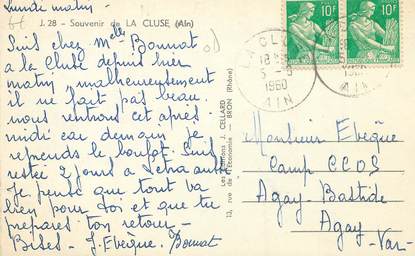 Lundi matin -
J. 28 - Souvenir de LA CLUSE (Ain)
Suis chez Melle Bonnat
a la Cluse depuis hier
matin, malheureusement
il ne fait pas beau.
nous rentrons cet après
midi car demain je
reprends le boulot. Suis
restée 2 jours a
Je pense que tout va
bien pour toi et que tu
prépares ton retour -
J. Evèque. Bonnat
Les Editions J. CELLARD
13, rue de l'Economie - BRON (Rhône)
10F
10F
LA CLUSE
1960
AIN
Monsieur Evèque
Camp CCOS
Agay-Bastide
Agay
-Var-